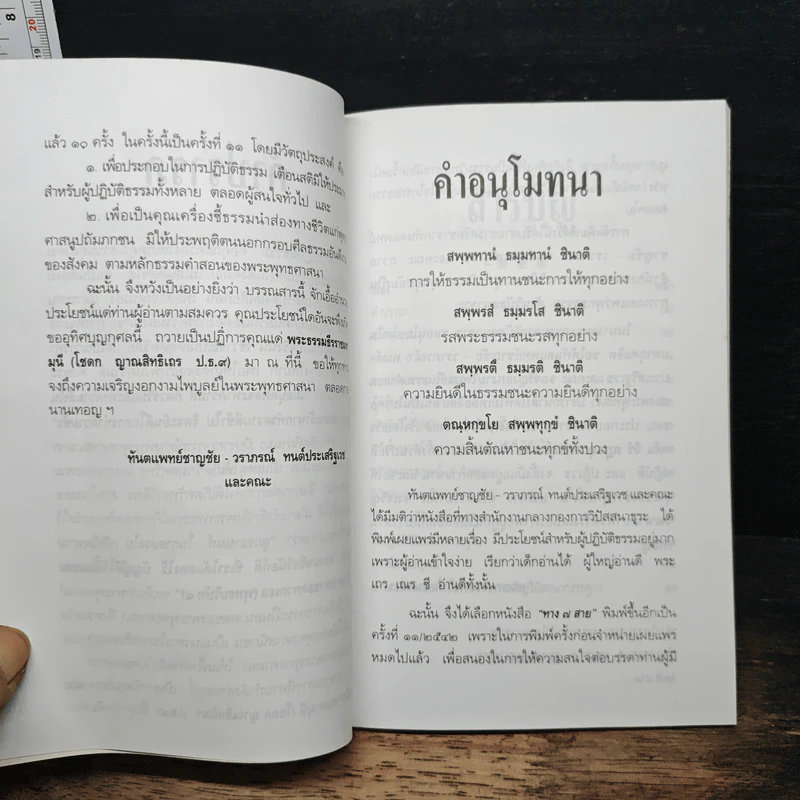 แล้ว ๑๐ ครั้ง ในครั้งนี้เป็นครั้งที่ ๑๑ โดยมีวัตถุประสงค์ คือ
๑. เพื่อประกอบในการปฏิบัติธรรม เตือนสติมิให้
สำหรับผู้ปฏิบัติธรรมทั้งหลาย ตลอดผู้สนใจทั่วไป และ
๒. เพื่อเป็นคุณเครื่องชี้ธรรมนำส่องทางชีวิตแก่
ศาสนูปถัมภกชน มิให้ประพฤติตนนอกกรอบศีลธรรมอันดี
ของสังคม ตามหลักธรรมคำสอนของพระพุทธศาสนา
ฉะนั้น จึงหวังเป็นอย่างยิ่งว่า บรรณสารนี้ จักเอื้อ
ประโยชน์แด่ท่านผู้อ่านตามสมควร คุณประโยชน์ใดอันจะพึง
ขออุทิศบุญกุศลนี้ ถวายเป็นปฏิการคุณแด่ พระธรรมธีรราช
มุนี (โชดก ญาณสิทธิเถร ป.ธ.๙) มา ณ ที่นี้ ขอให้ทุก
จงถึงความเจริญงอกงามไพบูลย์ในพระพุทธศาสนา ตลอด
นานเทอญ ฯ
ทันตแพทย์ชาญชัย - วราภรณ์ ทนต์ประเสริฐเวช
และคณะ
คำอนุโมทนา
สพฺพทานํ ธมฺมทานํ ชินาติ
การให้ธรรมเป็นทานชนะการให้ทุกอย่าง
สพฺพรสํ ธมฺมรโส ชินาติ
รสพระธรรมชนะรสทุกอย่าง
สพฺพรตึ ธมฺมรติ ชินาติ
ความยินดีในธรรมชนะความยินดีทุกอย่าง
ตณฺหกฺขโย สพฺพทุกฺขํ ชินาติ
ความสิ้นตัณหาชนะทุกข์ทั้งปวง
ทันตแพทย์ชาญชัย - วราภรณ์ ทนต์ประเสริฐเวช และคณะ
ได้มีมติว่าหนังสือที่ทางสำนักงานกลางกองการวิปัสสนาธุระ ได้
พิมพ์เผยแพร่มีหลายเรื่อง มีประโยชน์สำหรับผู้ปฏิบัติธรรมอยู่มาก
เพราะผู้อ่านเข้าใจง่าย เรียกว่าเด็กอ่านได้ ผู้ใหญ่อ่านดี พระ
เถร เณร ชี อ่านดีทั้งนั้น
ฉะนั้น จึงได้เลือกหนังสือ "ทาง ๗ สาย" พิมพ์ขึ้นอีกเป็น
ครั้งที่ ๑๑/๒๕๔๒ เพราะในการพิมพ์ครั้งก่อนจำหน่ายเผยแพร่
หมดไปแล้ว เพื่อสนองในการให้ความสนใจต่อบรรดาท่านผู้มี